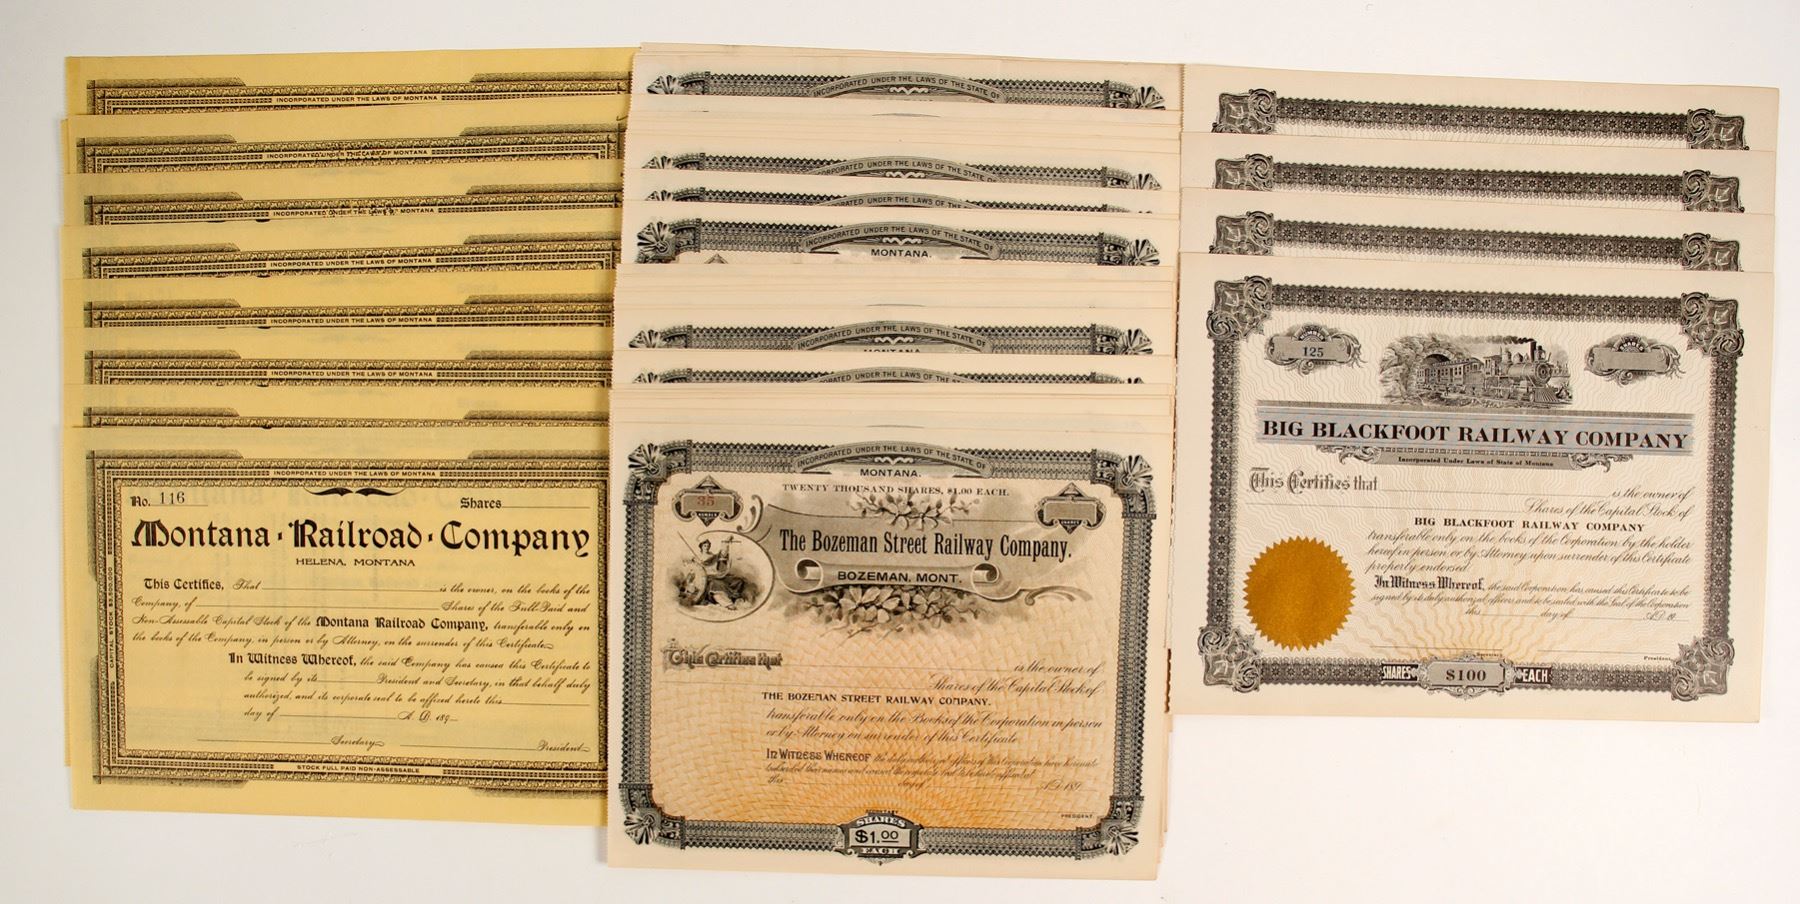 INCORPORATED UNDER THE LAWS OF MONTANA
INCORPORATED UNDER THE LAWS OF MONTANA
INCORPORATED UNDER THE LAWS OF MONTANA
INCORPORATED UNDER THE LAWS OF MONTANA
INCORPORATED UNDER THE LAWS OF MONTANA
INCORPORATED UNDER THE LAWS OF MONTANA
INCORPORATED UNDER THE LAWS OF MONTANA
No. 116 Shares
Montana Railroad Company
HELENA, MONTANA
This Certifies, That is the owner, on the books of the
Company, of Shares of the Full Paid and
Non-Assessable Capital Stock of the Montana Railroad Company, transferable only on
the books of the Company, in person or by Attorney, on the surrender of this Certificate
In Witness Whereof, the said Company has caused this Certificate to
be signed by its President and Secretary, in that behalf duly
authorized, and its corporate seal to be affixed hereto this
day of A. D. 189
Secretary President
STOCK FULL PAID NON-ASSESSABLE
CAPITAL STOCK
INCORPORATED UNDER THE LAWS OF THE STATE OF
INCORPORATED UNDER THE LAWS OF THE STATE OF
INCORPORATED UNDER THE LAWS OF THE STATE OF
INCORPORATED UNDER THE LAWS OF THE STATE OF
MONTANA.
INCORPORATED UNDER THE LAWS OF THE STATE OF
MONTANA
INCORPORATED UNDER THE LAWS OF THE STATE OF
INCORPORATED UNDER THE LAWS OF THE STATE OF
MONTANA.
TWENTY THOUSAND SHARES, $1.00 EACH.
35
NUMBER
SHARES
The Bozeman Street Railway Company.
BOZEMAN, MONT.
This Certifies that
is the owner of
Shares of the Capital Stock of
THE BOZEMAN STREET RAILWAY COMPANY.
transferable only on the Books of the Corporation in person
or by Attorney on surrender of this Certificate
IN WITNESS WHEREOF the duly authorized officers of this Corporation have hereunto
subscribed their names and caused the corporate Seal to be hereto affixed at
this day of A.D. 189
SECRETARY PRESIDENT
SHARES
$1.00
EACH
NUMBER
125
SHARES
BIG BLACKFOOT RAILWAY COMPANY
Incorporated Under Laws of State of Montana
This Certifies that
is the owner of
Shares of the Capital Stock of
BIG BLACKFOOT RAILWAY COMPANY
transferable only on the books of the Corporation by the holder
hereof in person or by Attorney upon surrender of this Certificate
properly endorsed.
In Witness Whereof, the said Corporation has caused this Certificate to be
signed by its duly authorized officers and to be sealed with the Seal of the Corporation
this day of A.D. 19
Secretary President
SHARES $100 EACH